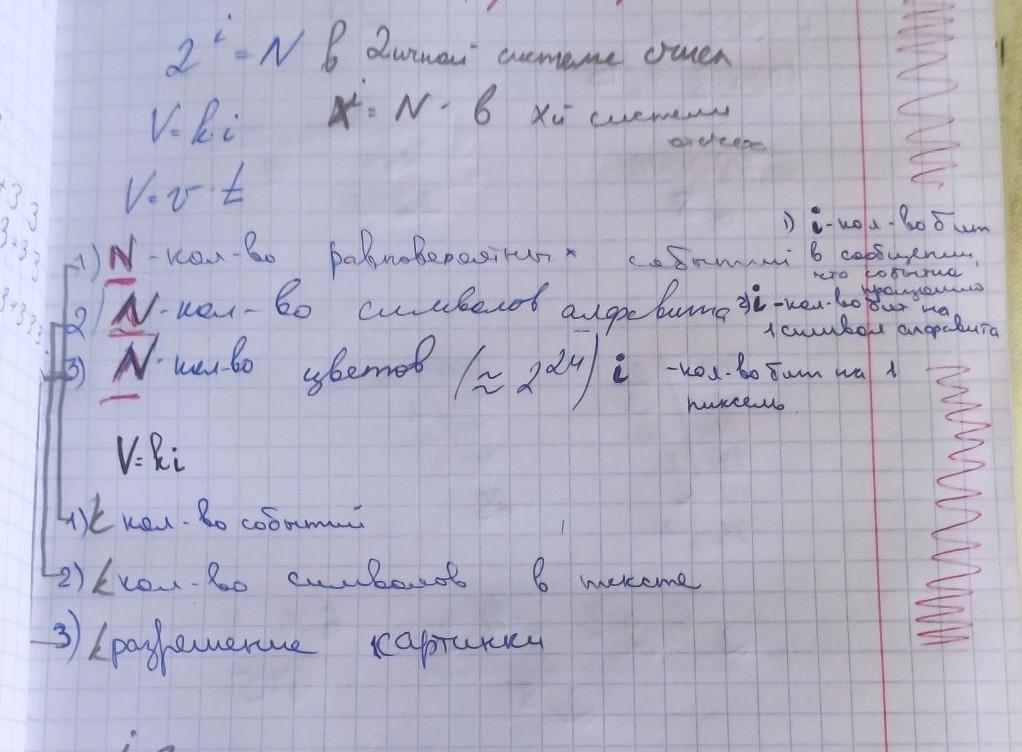 2^i = N в 2ичной системе счисл
V=ki X^i = N - в Xй системе
счисл
V=v·t
1) N - кол-во равновероятных событий
1) i - кол-во бит
в сообщении,
что событие
произошло
2) N - кол-во символов алфавита
2) i - кол-во бит на
1 символ алфавита
3) N - кол-во цветов (≈ 2^24) i - кол-во бит на 1
пиксель
V=ki
1) k кол-во событий
2) k кол-во символов в тексте
3) k разрешение картинки